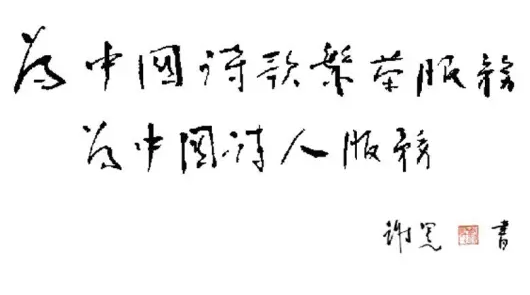 为中国诗歌繁荣服务
为中国诗人服务
谢冕 书